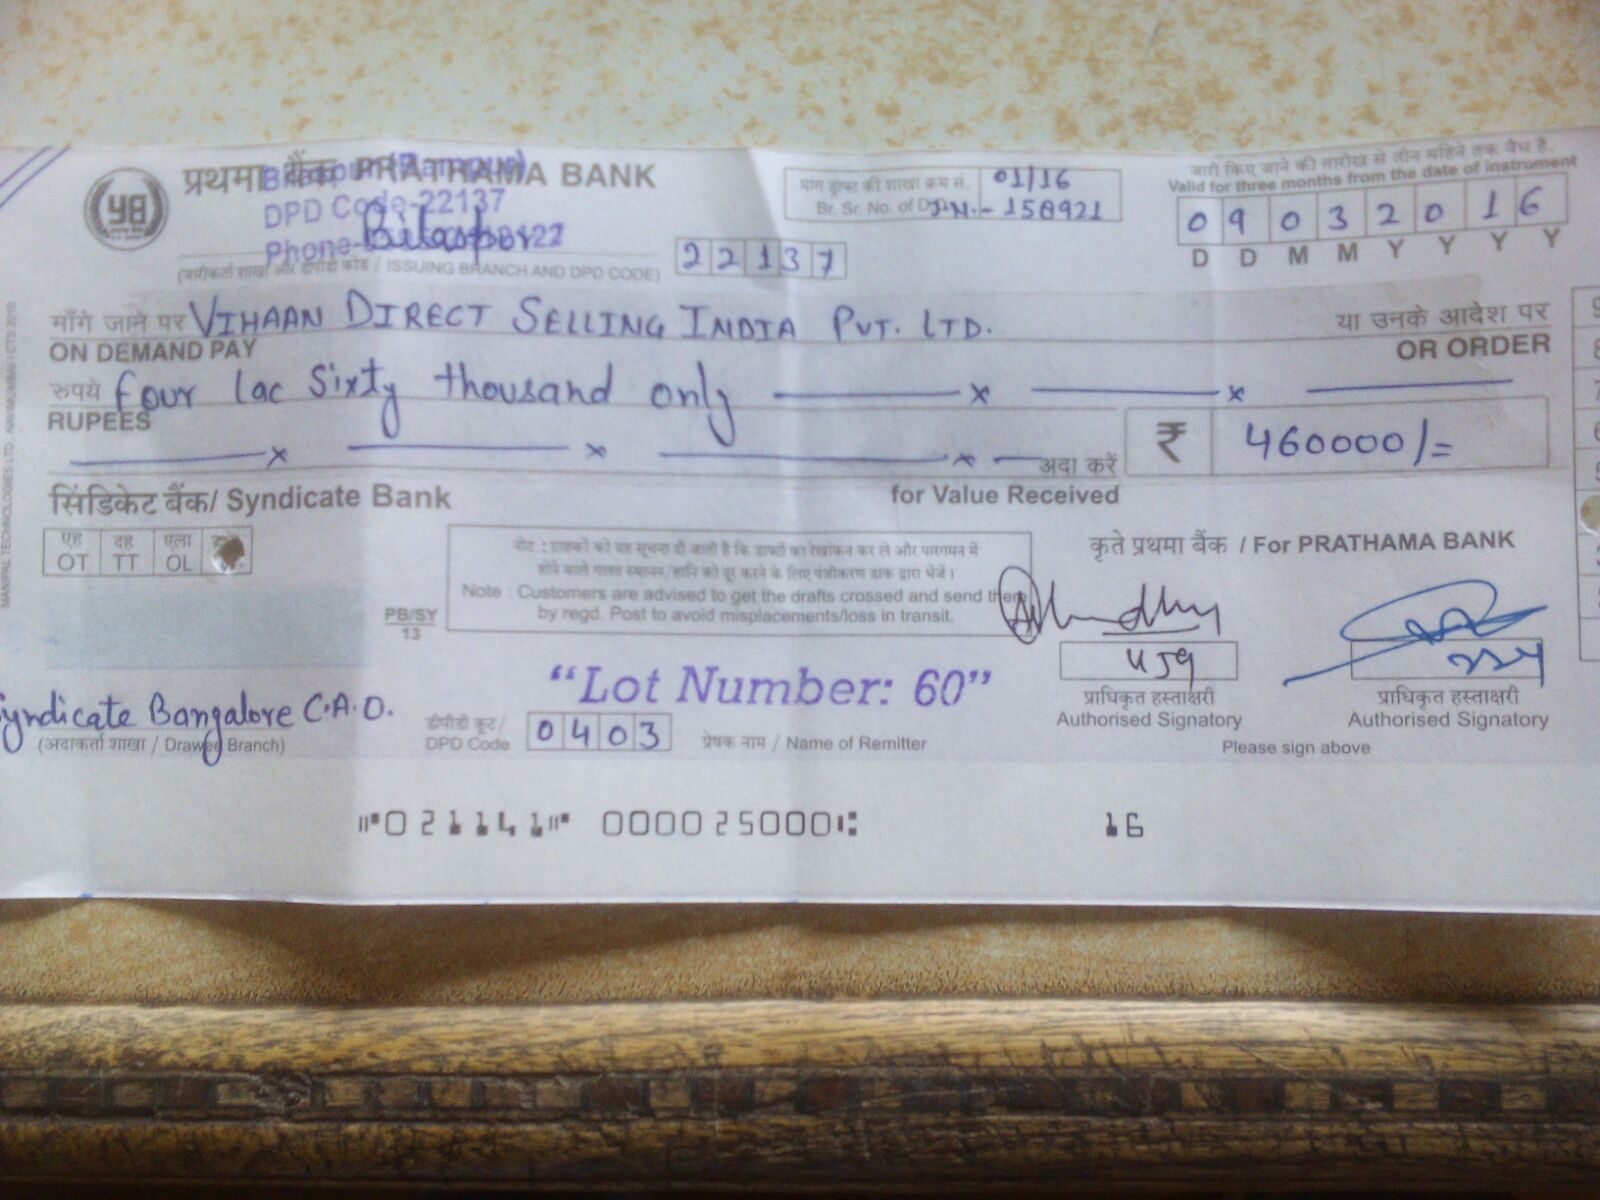 प्रथमा बैंक PRATHAMA BANK
DPD Code-22137
Phone-
Bilaspur
(जारीकर्ता शाखा और डीपीडी कोड / ISSUING BRANCH AND DPD CODE)
22137
मांग ड्राफ्ट की शाखा क्रम सं. 01/16
Br. Sr. No. of D.D. 158921
जारी किए जाने की तारीख से तीन महिने तक वैध है.
Valid for three months from the date of instrument
09032016
D D M M Y Y Y Y
माँगे जाने पर VIHAAN DIRECT SELLING INDIA PVT. LTD. या उनके आदेश पर
ON DEMAND PAY OR ORDER
रुपये four lac Sixty thousand only
RUPEES
अदा करें ₹ 460000/=
सिंडिकेट बैंक/ Syndicate Bank for Value Received
एह दह एला
OT TT OL
नोट : ग्राहकों को यह सूचना दी जाती है कि ड्राफ्टों का रेखांकन कर ले और पारगमन में
होने वाले गलत स्थानन/हानि को दूर करने के लिए पंजीकरण डाक द्वारा भेजें।
Note : Customers are advised to get the drafts crossed and send them
by regd. Post to avoid misplacements/loss in transit.
PB/SY
13
कृते प्रथमा बैंक / For PRATHAMA BANK
"Lot Number: 60"
प्राधिकृत हस्ताक्षरी प्राधिकृत हस्ताक्षरी
Authorised Signatory Authorised Signatory
Please sign above
Syndicate Bangalore C.A.O.
(अदाकर्ता शाखा / Drawee Branch)
डीपीडी कूट/
DPD Code 0403 प्रेषक नाम / Name of Remitter
⑈021141⑈ 000025000⑆ 16
MANIPAL TECHNOLOGIES LTD., NAVI MUMBAI / CTS-2010